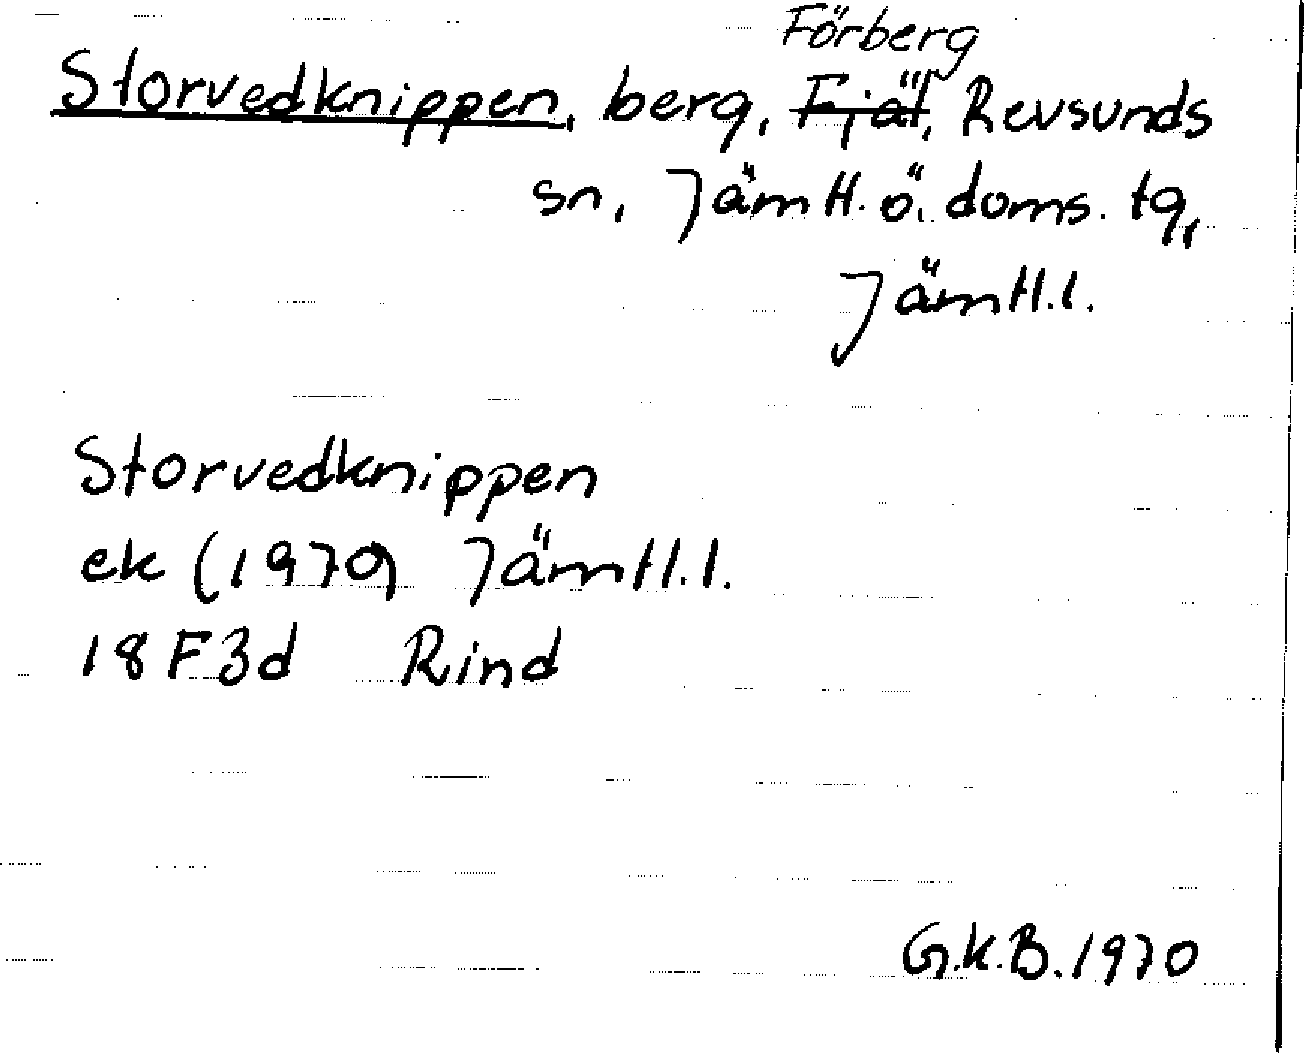 Förberg
Storvedknippen, berg, Fjäl, Revsunds
sn, Jämtl. ö. doms. tg,
Jämtl.l.
Storvedknippen
ek (1970) Jämtl.l.
18 F 3d Rind
G.K.B. 1970